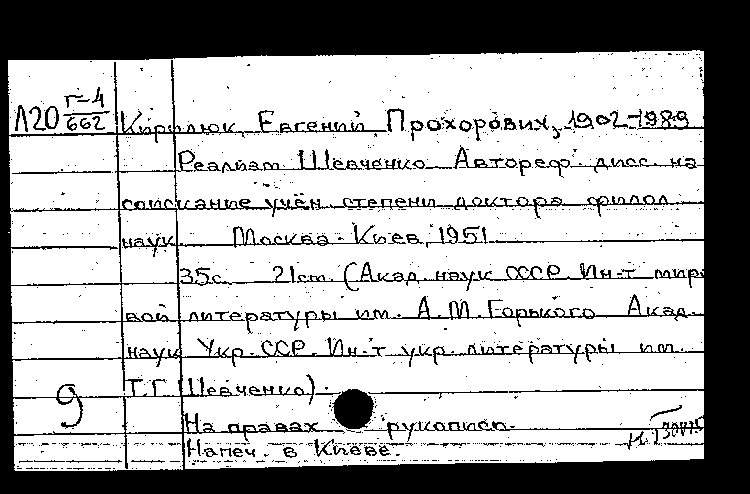 Л20 Г-4/662 Кирилюк, Евгений Прохорович, 1902-1989
Реализм Шевченко. Автореф. дисс. на
соискание учён. степени доктора филол.
наук. Москва-Киев, 1951
35с. 21см. (Акад. наук СССР. Ин-т миро
вой литературы им. А.М.Горького Акад.
наук Укр.ССР. Ин-т укр. литературы им.
Т.Г. Шевченко).
9
На правах рукописи.
Напеч. в Киеве.